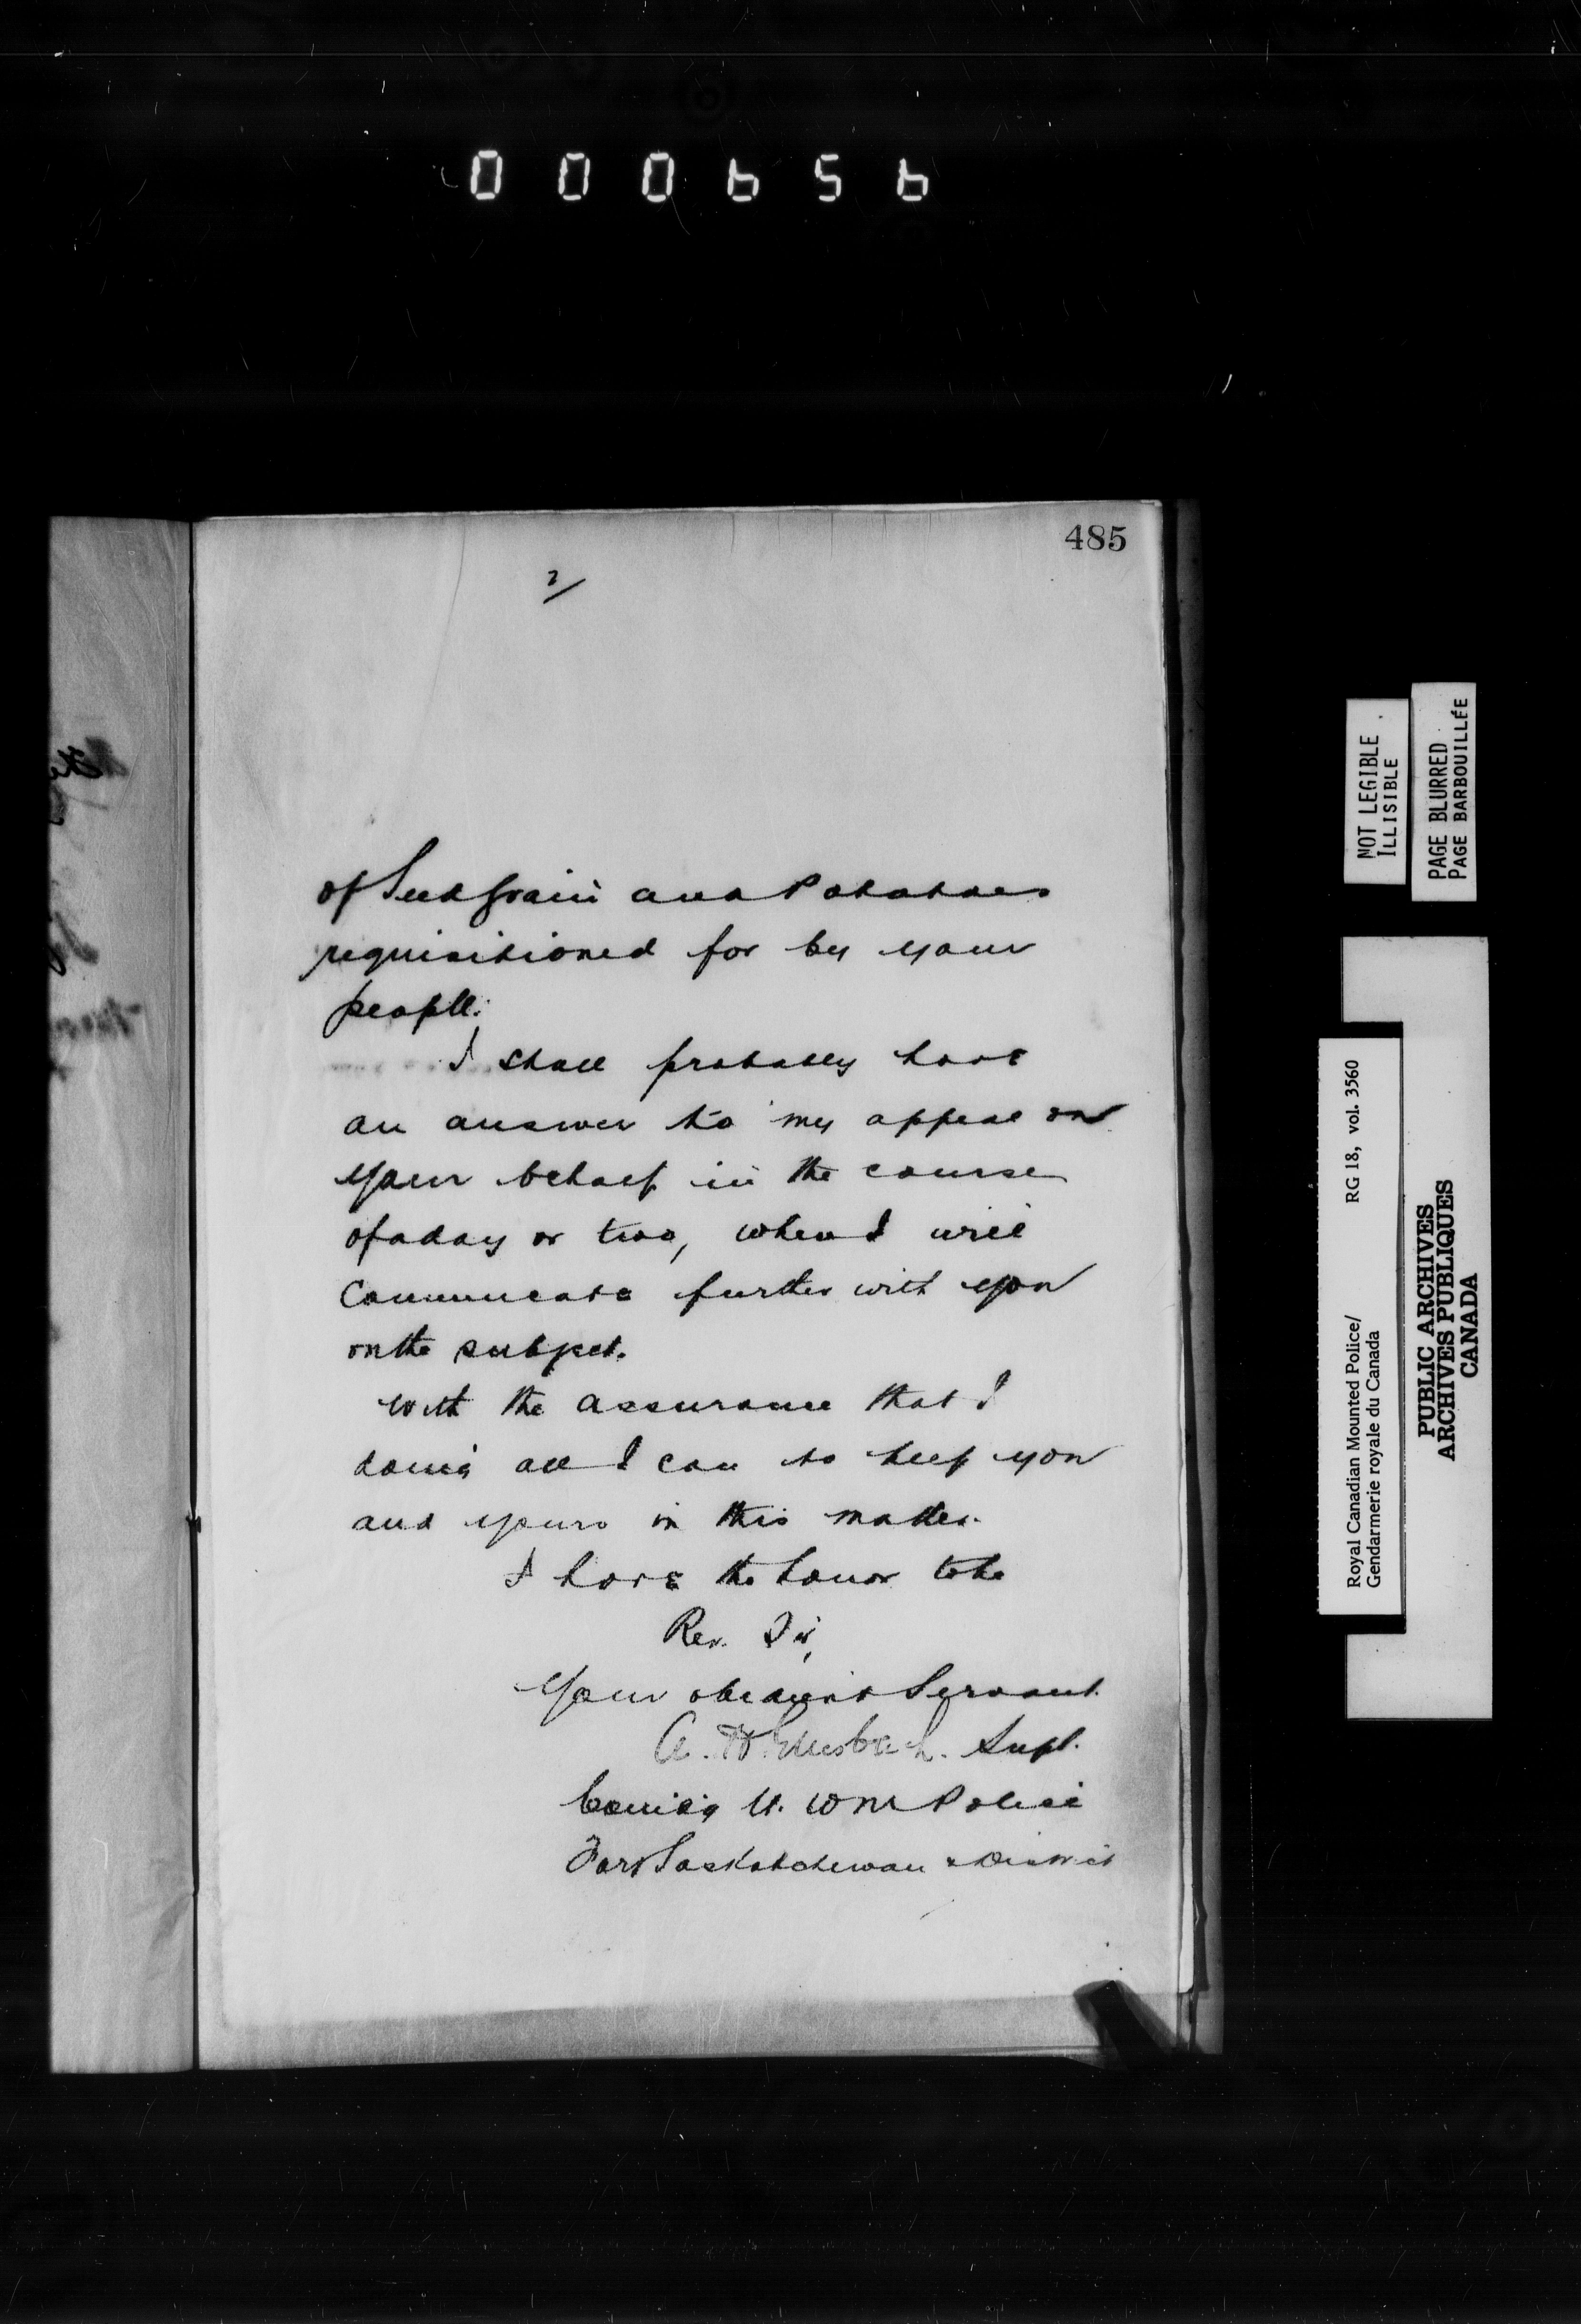 000656
485
2/
of Seed Grain and Potatoes
requisitioned for by your
people.
I shall probably have
an answer to my appeal on
your behalf in the course
of a day or two, when I will
Communicate further with you
on the subject.
with the assurance that I
doing all I can to help you
and yours in this matter.
I have the honor to be
Rev. Sir,
Your obedient Servant.
A. H. Griesbach. Supt.
Com'd'g N. W M Police
Fort Saskatchewan & District
NOT LEGIBLE
ILLISIBLE
PAGE BLURRED
PAGE BARBOUILLÉE
Royal Canadian Mounted Police/ RG 18, vol. 3560
Gendarmerie royale du Canada
PUBLIC ARCHIVES
ARCHIVES PUBLIQUES
CANADA